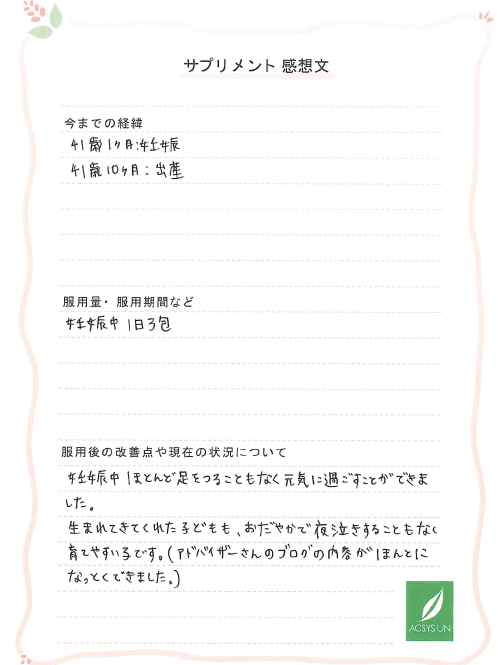 サプリメント 感想文
今までの経緯
41歳1ヶ月:妊娠
41歳10ヶ月：出産
服用量・服用期間など
妊娠中 1日3包
服用後の改善点や現在の状況について
妊娠中ほとんど足をつることもなく元気に過ごすことができま
した。
生まれてきてくれた子どもも、おだやかで夜泣きすることもなく
育てやすい子です。(アドバイザーさんのブログの内容がほんとに
なっとくできました。)
ACSYSUN